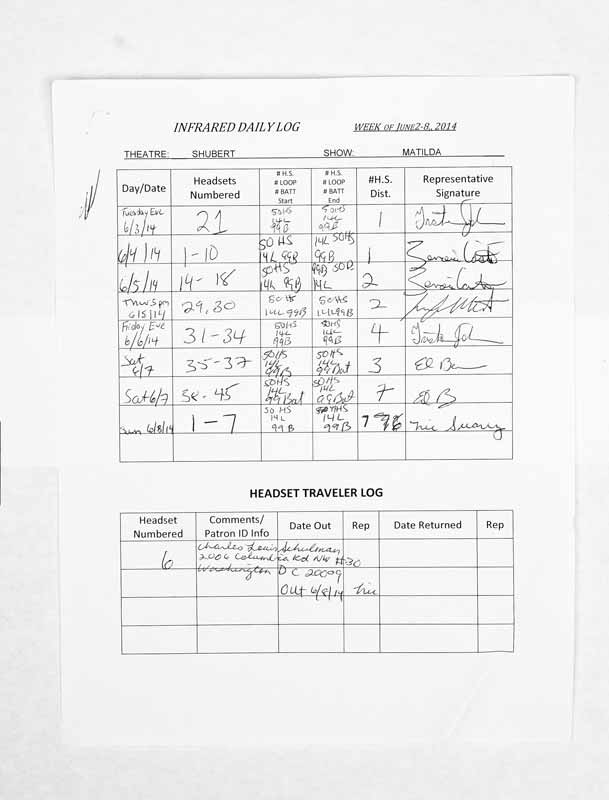 INFRARED DAILY LOG WEEK OF JUNE2-8,, 2014
THEATRE: SHUBERT SHOW: MATILDA
Day/Date Headsets Numbered # H.S. # LOOP # BATT Start # H.S. # LOOP # BATT End #H.S. Dist. Representative Signature
Tuesday Eve 6/3/14 21 50HS 14L 99B 50HS 14L 99B 1
6/4/14 1-10 50 HS 14L 99B 14L 50HS 99B 1
6/5/14 14-18 50HS 14L 99B 99B 14L 2
6/5/14 29,30 50 HS 14L 99B 50HS 14L 99B 2
Friday Eve 6/6/14 31-34 50HS 14L 99B 50HS 14L 99B 4
Sat 6/7 35-37 50HS 14L 99B 50HS 14L 99Bat 3 El B
Sat 6/7 38-45 50HS 14L 99Bat 50HS 14L 99Bat 7 El B
Sun 6/8/14 1-7 50 HS 14L 99B HS 14L 99B 7
HEADSET TRAVELER LOG
Headset Numbered Comments/ Patron ID Info Date Out Rep Date Returned Rep
Charles Louis Schulman
6 2006 Columbia Rd NW #30
Washington DC 20009
Out 6/8/14